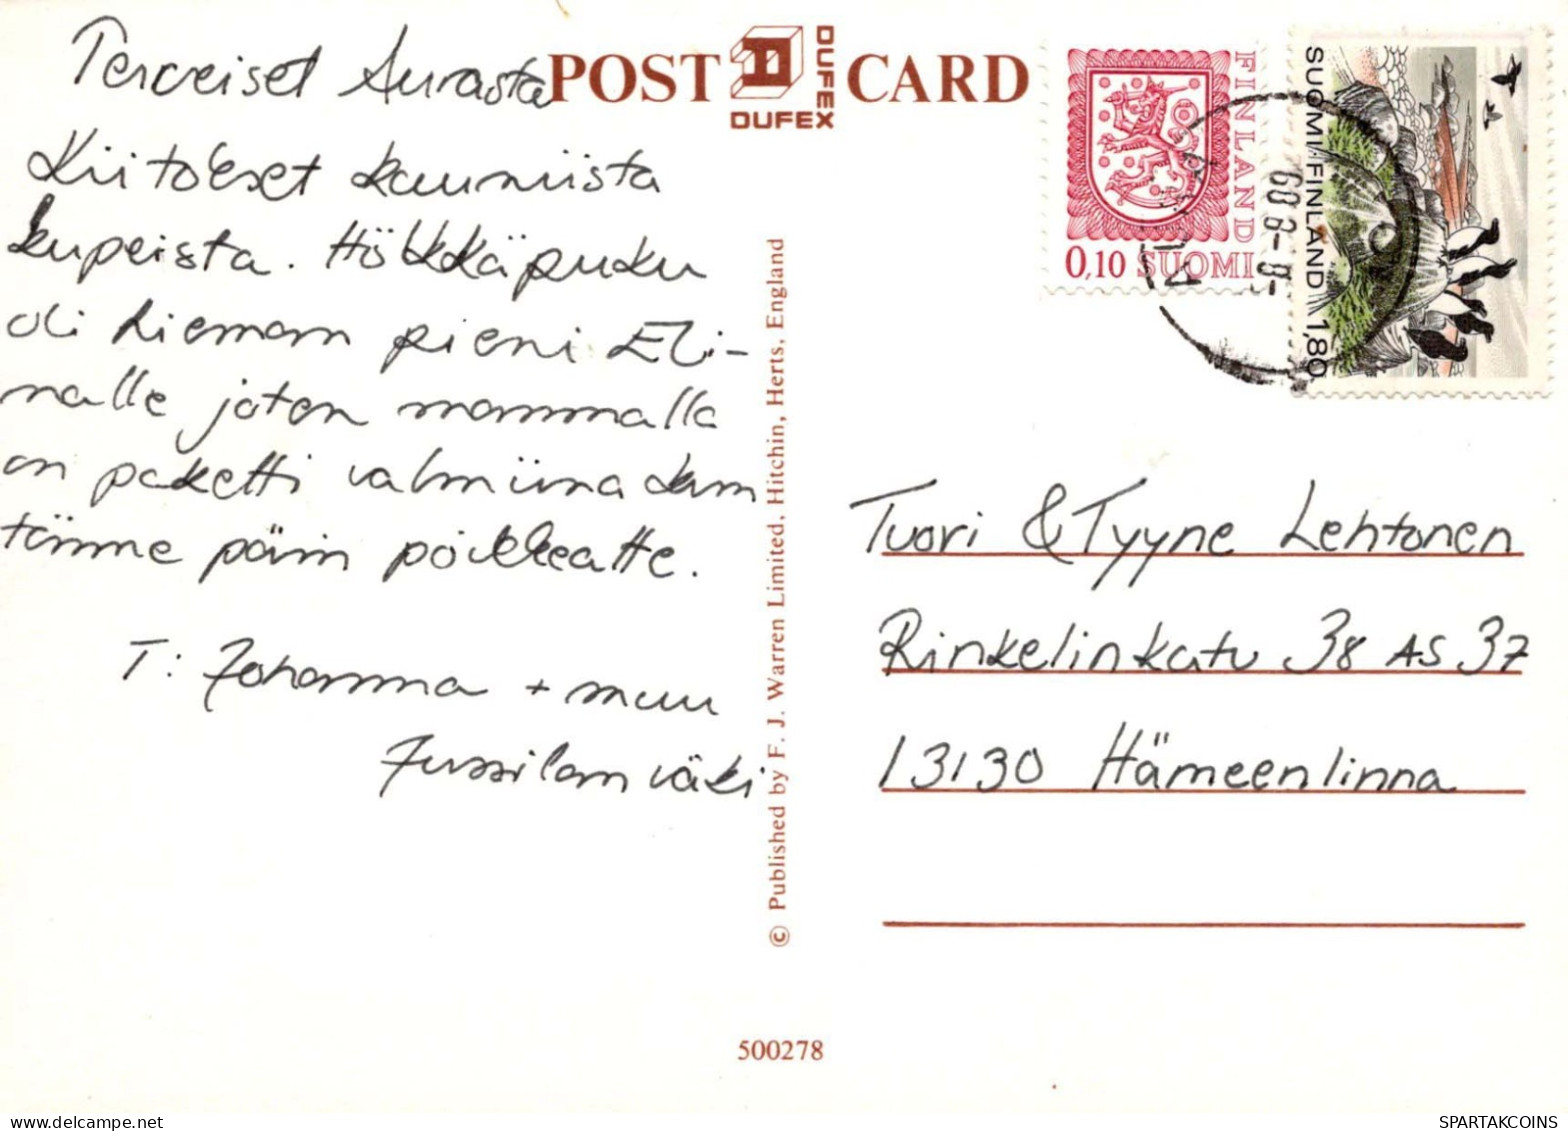 Terveiset Aurasta
Kiitokset kauniista
kupeista. Hölkkäpuku
oli hieman pieni Eli-
nalle joten mammalla
on paketti valmiina kun
tänne päin poikkeatte.
T: Johanna + muu
Jussilan väki
POST CARD
DUFEX
DUFEX
© Published by F. J. Warren Limited, Hitchin, Herts, England
FINLAND
0,10 SUOMI
SUOMI-FINLAND 1,80
-8-8 89
Tuori & Tyyne Lehtonen
Rinkelinkatu 38 AS 37
13130 Hämeenlinna
500278
SPARTAKCOINS